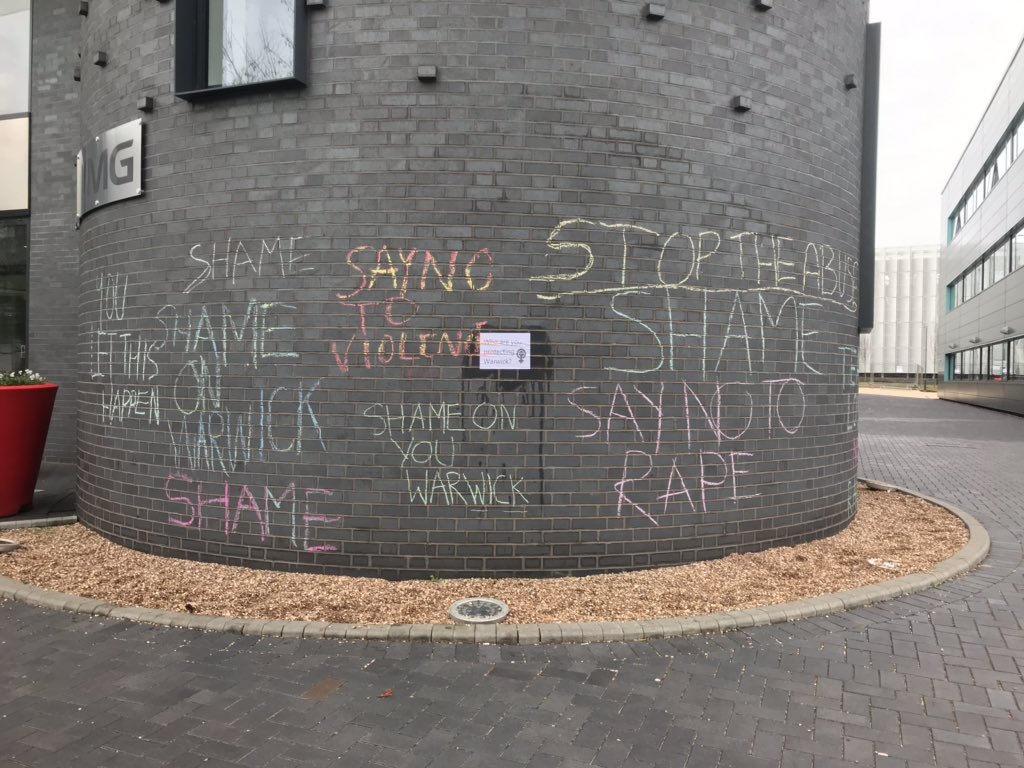 MG
YOU
LET THIS
HAPPEN
SHAME
SHAME
ON
WARWICK
SHAME
SAY NO
TO
VIOLENC
Who are you
protecting
Warwick?
SHAME ON
YOU
WARWICK
STOP THE ABUSE
SHAME
SAY NO TO
RAPE